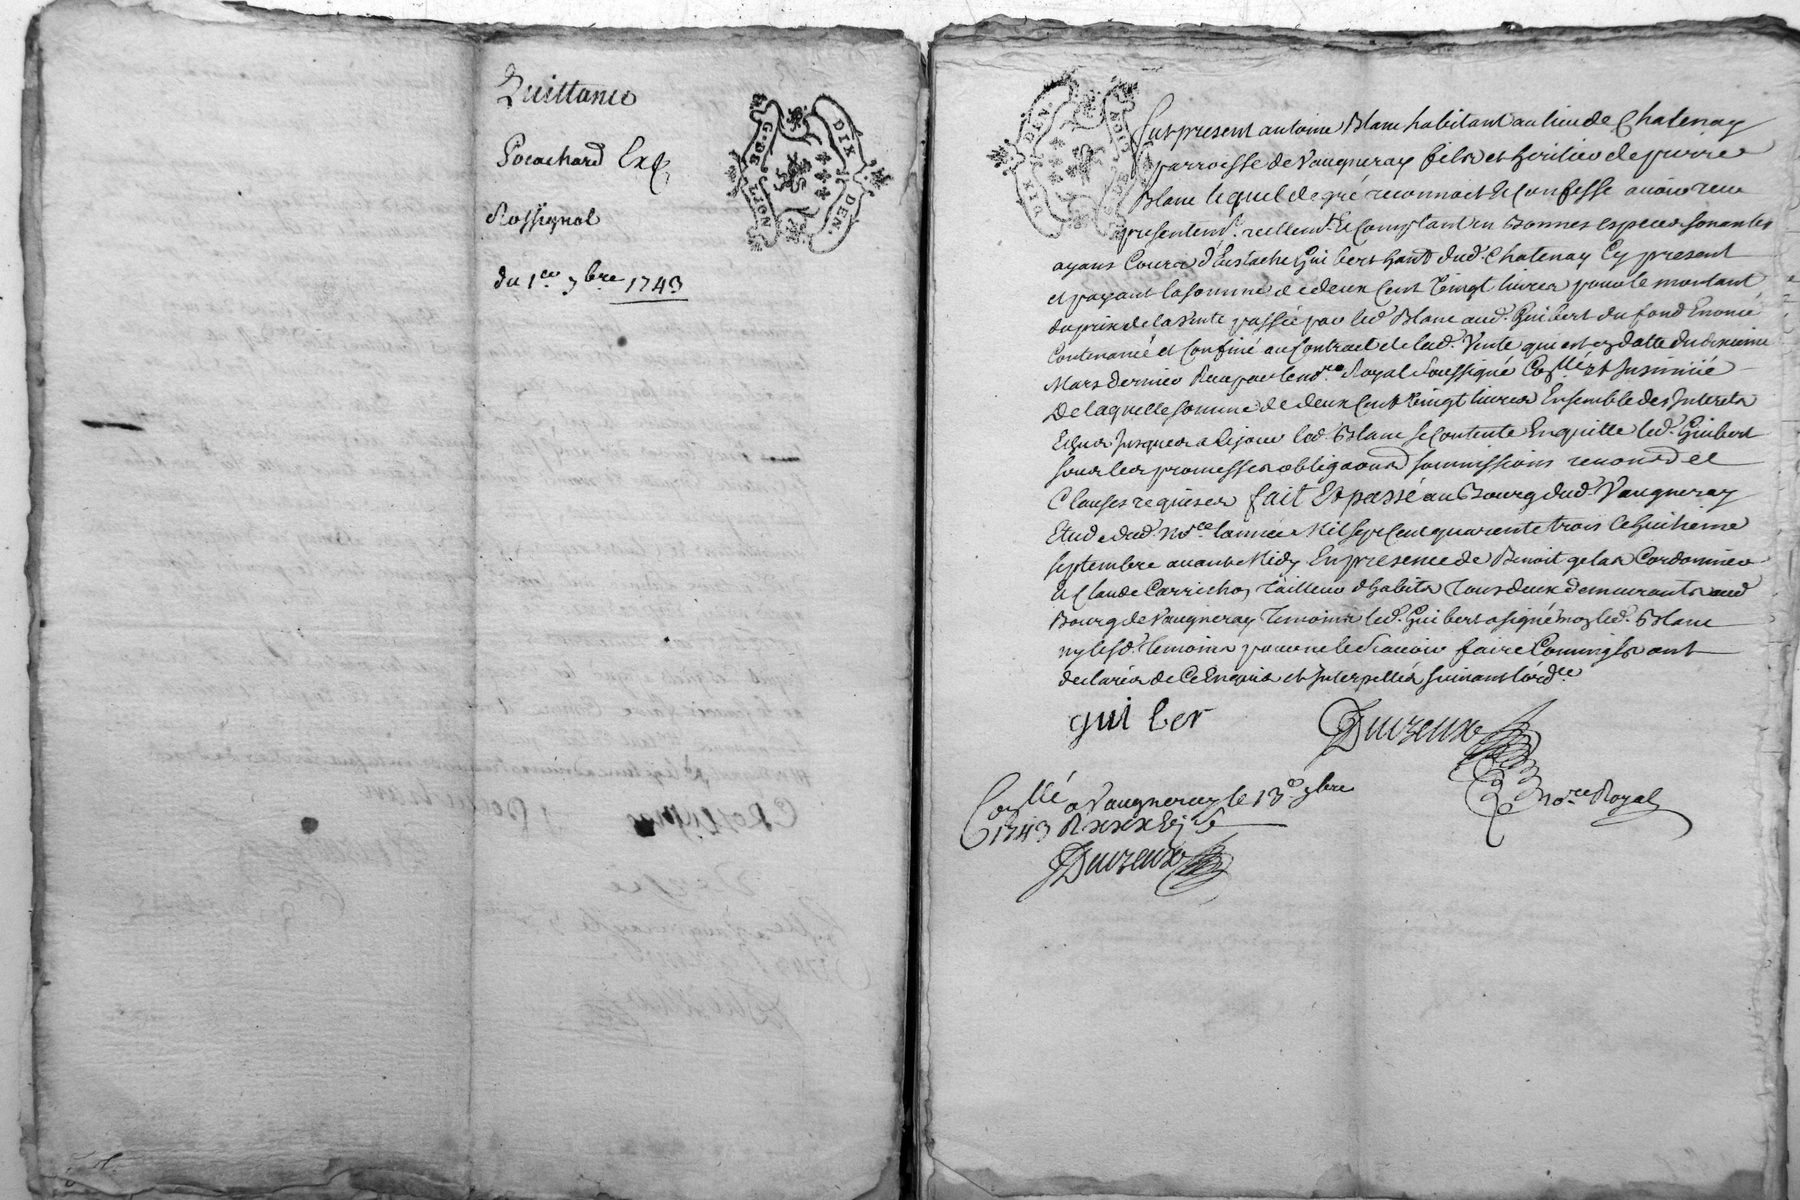 Quittance
Pouachard Ex⁠
Rossignol
du 1.er 7bre 1743
G. DE LION
DIX DEN.
DIX DEN.
G. DE LION
Fut present antoine Blanc habitant au lieu de Chatenay
parroisse de Vaugneray fils et heritier de pierre
Blanc lequel de gré reconnoit et Confesse avoir receu
presentemt. reellemt. et Comptant en Bonnes especes sonantes
ayans Cours d'Eustache Guibert habt. dud. Chatenay Cy present
et payant la somme de deux Cent vingt livres pour le montant
du prix de la vente passée par led. Blanc aud. Guibert du fond Enoncé
Contenancé et Confiné au Contract de lad. Vente qui est en datte du
Mars dernier Receu par le nore. Royal soussigné Coллé et Insinué
De laquelle somme de deux Cent vingt livres Ensemble des Interets
Echus Jusques a ce jour led. Blanc se contente En quitte led. Guibert
sous les promesses obligaons soumissions renond. et
Clauses requises fait Et passé au Bourg dud. Vaugneray
Etude dud. nore. l'année Mil sept Cent quarente trois le huitieme
septembre avant Midy En presence de Benoit gelas Cordonnier
et Claude Carrichon Tailleur d'habits Tous deux demeurants aud.
Bourg de Vaugneray Temoins led. Guibert a signé non led. Blanc
ny lesd. temoins pour ne le sçavoir faire Comme ils ont
declarés de Ce Enquis et Interpellés suivant l'ordce.
gui ber
Duizeux
nore. Royal
Collé a Vaugneray le 13e 7bre
1743 R
Duizeux